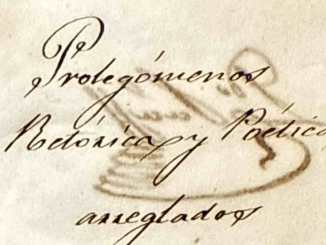 Prolegómenos
Retórica y Poética
arreglados